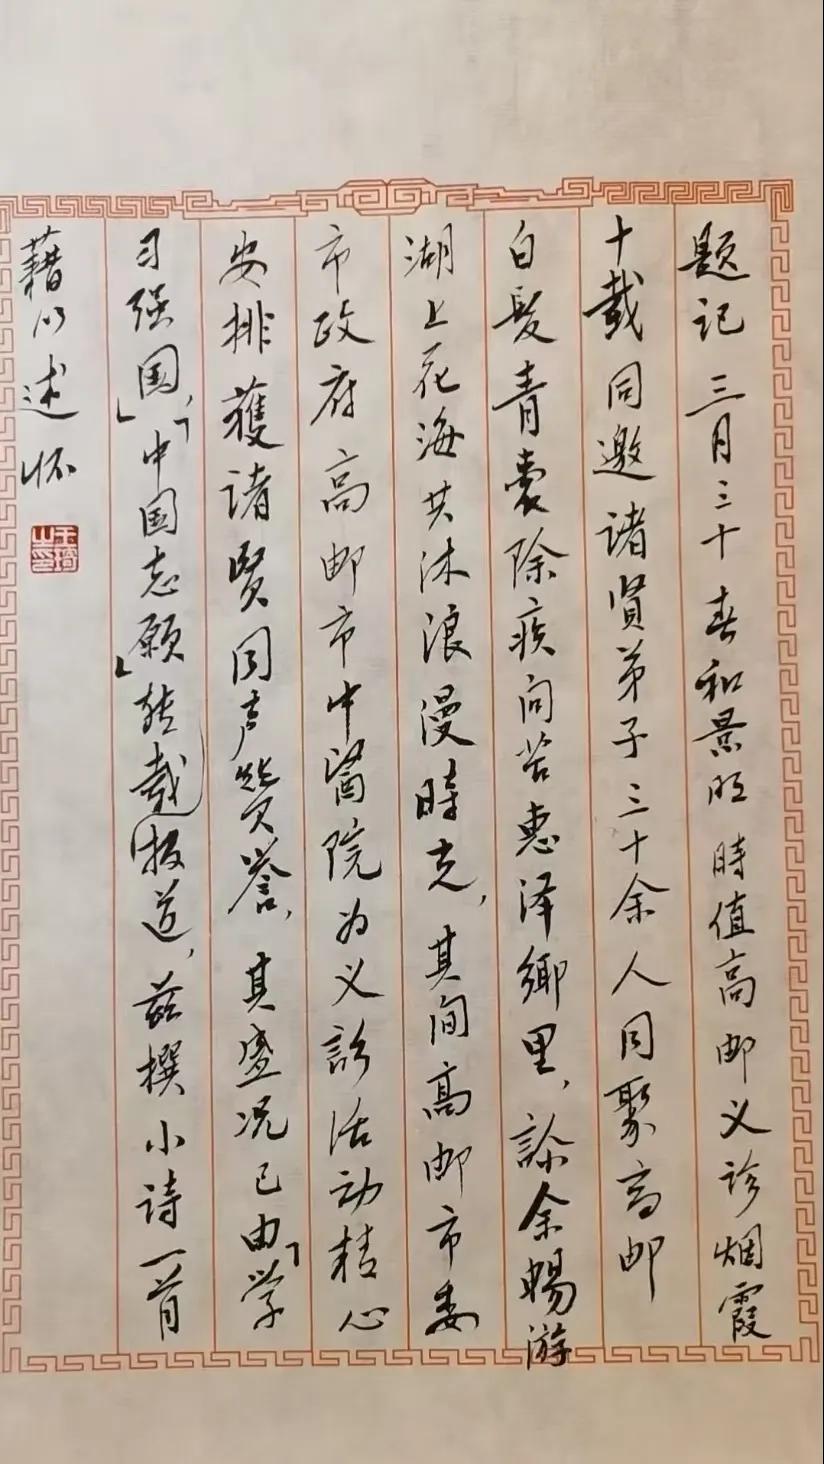 题记 三月三十春和景明時值高邮义诊烟霞
十载同邀诸贤弟子三十余人同聚高邮
白髮青囊除疾问苦惠泽鄉里，診余暢游
湖上花海共沐浪漫時光，其间高邮市委
市政府高邮市中醫院为义診活动精心
安排獲诸贤同声赞誉，其盛况已由「学
习强国」，「中国志愿」转载报道，兹撰小诗一首
藉以述怀
王琦之印